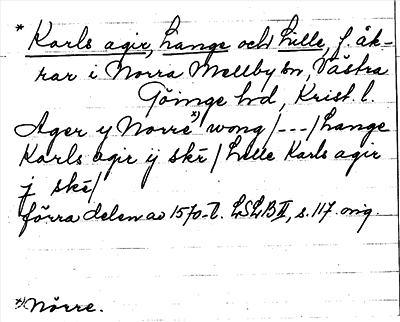 * Karls agir, Lange och Lille, f. åk-
rar i Norra Mellby sn, Västra
Göinge hd, Krist. l.
Ager y Norre *) wong /---/ Lange
Karls agir ij skē / Lille Karls agir
j skē/
förra delen av 1570-t. LSLB II, s. 117. orig.
*) Nörre.